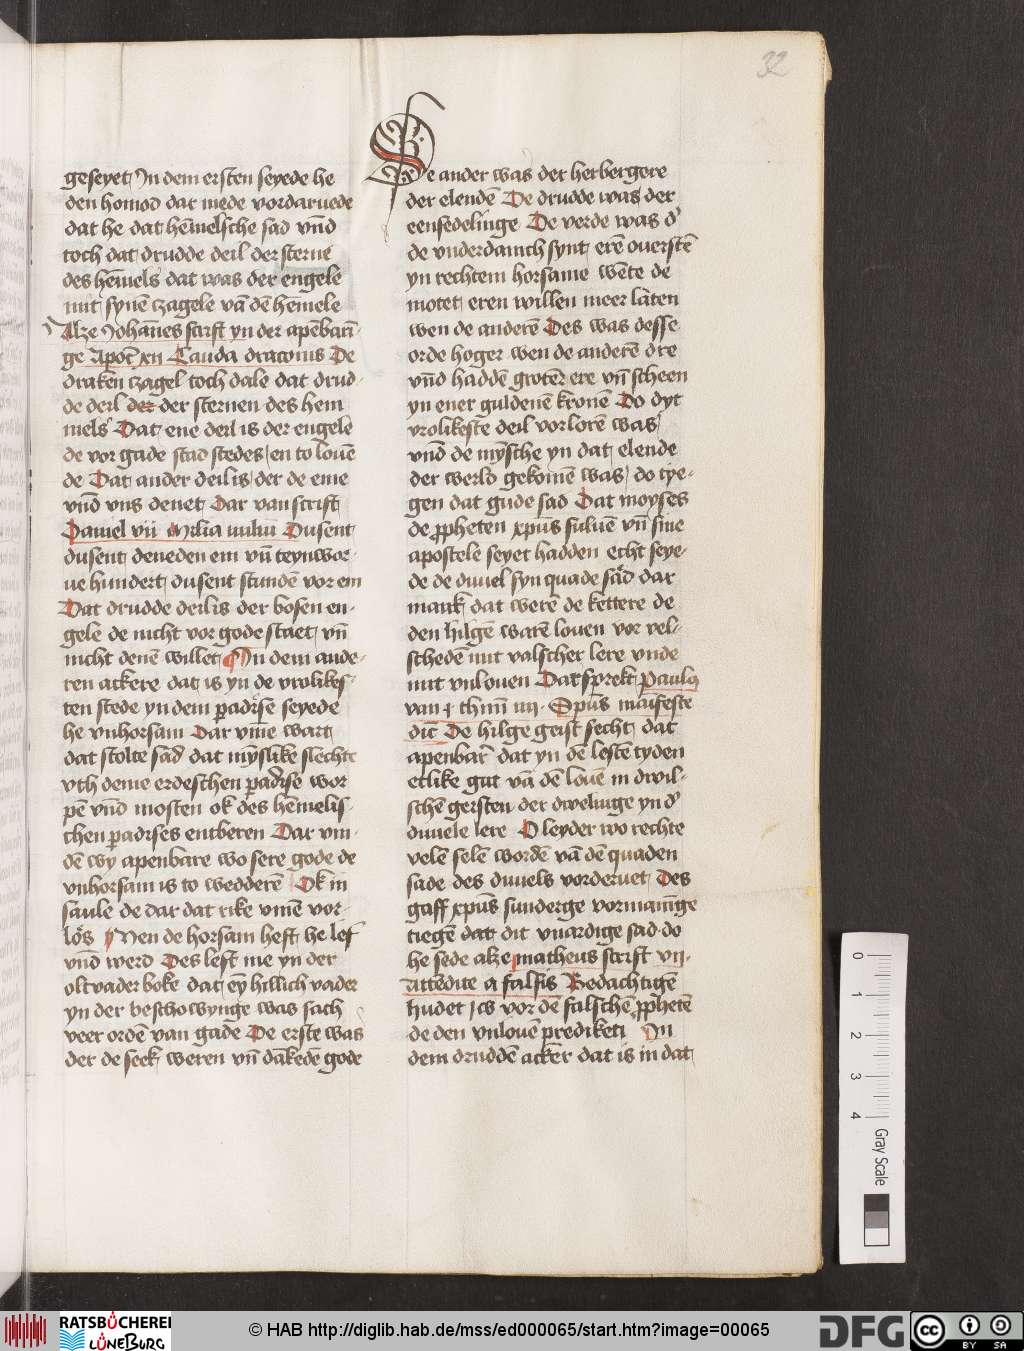 32
geseyet / In dem ersten seyede he
den homod dat mede vordaruede
dat he dat hēmelsche sad vn̄d
toch dat drudde deil der sterne
des hēmels dat was der engele
mit synē czagele vā dē hēmele
Alze Johānes scrift yn der apēbarī-
ge Apoc̄ xij Cauda draconis De
draken czagel toch dale dat drud-
de deil der der sternen des hem
mels Dat ene deil is der engele
de vor gade stad stedes / en to louē
de Dat ander deil is / der de eme
vn̄d vns denet Dar van scrift
Daniel vii Milia miliū Dusent
dusent deneden em vn̄ teynwor-
ue hundert dusent stundē vor em
Dat drudde deil is der bosen en-
gele de nicht vor gode staet / vn̄
nicht denē willet ¶ In dem ande-
ren ackere dat is yn de vrolikes-
ten stede yn dem padise seyede
he vnhorsam Dar vm̄e wart
dat stolte sad dat mȳslike slechte
vth deme erdeschen padise wor
pē vn̄d mosten ok des hēmelis-
chen padises entberen Dar vin-
dē wy apenbare wo sere gode de
vnhorsam is to wedderē Ok in
saule de dar dat rike vm̄e vor-
lōs Men de horsam heft he lef
vn̄d werd Des lest me yn der
oltvader boke dat eȳ hillich vader
yn der beschowynge was sach
veer ordē van gade De erste was
der de seck weren vn̄ dākedē gode
De ander was der herbergere
der elendē De drudde was der
eensedelinge De verde was d'
de vnderdanich synt erē ouerstē
yn rechtem horsame wēte de
motet eren willen meer lāten
wen de anderē Des was desse
orde hoger wen de anderē dre
vn̄d haddē groter ere vn̄ scheen
yn ener guldenē kronē Do dyt
vrolikeste deil vorlorē was
vn̄d de mȳsche yn dat elende
der werld gekomē was / do tye-
gen dat gude sad Dat moyses
de ppheten xpūs suluē vn̄ sine
apostele seyet hadden echt seye-
de de duuel syn quade sad dar
mank dat werē de kettere de
den hilgē warē louen vor vel-
schedē mit valscher lere vnde
mit vnlouen Dar sprekt Paulus
van i thimͦ iiij Spūs māifeste
dic̄ De hilge geist secht dat
apenbar dat yn dē leste tyden
etlike gut vā dē louē in dwil-
schē gersten der dwelinge yn d'
duuele lere O leyder wo rechte
velē selē wordē vā dē quaden
sade des duuels vorderuet Des
gaff xpūs sunderge vormanīge
tiegē dat dit vnardige sad do
he sede alze matheus scrift vii
Attēdite a falsis Bedachtigē
hudet iw vor de falschē pphetē
de den vnlouē predikē In
dem druddē acker dat is in dat
0 1 2 3 4
Gray Scale
RATSBÜCHEREI
LÜNEBURG
© HAB http://diglib.hab.de/mss/ed000065/start.htm?image=00065
DFG
cc
BY SA